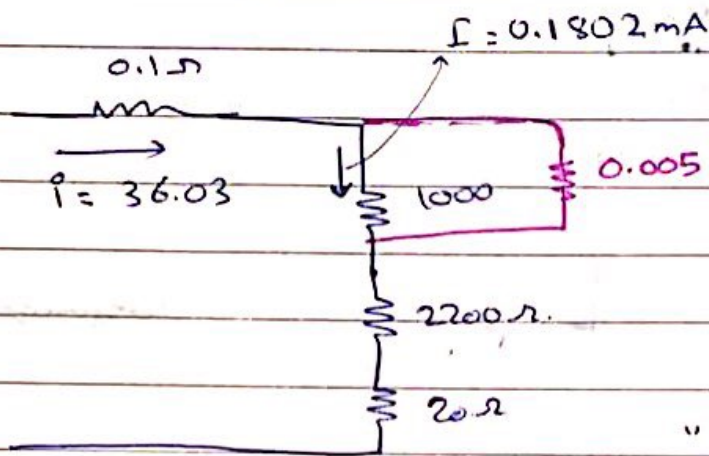 I = 0.1802 mA
0.1Ω
i = 36.03
1000
0.005
2200Ω.
20Ω
"